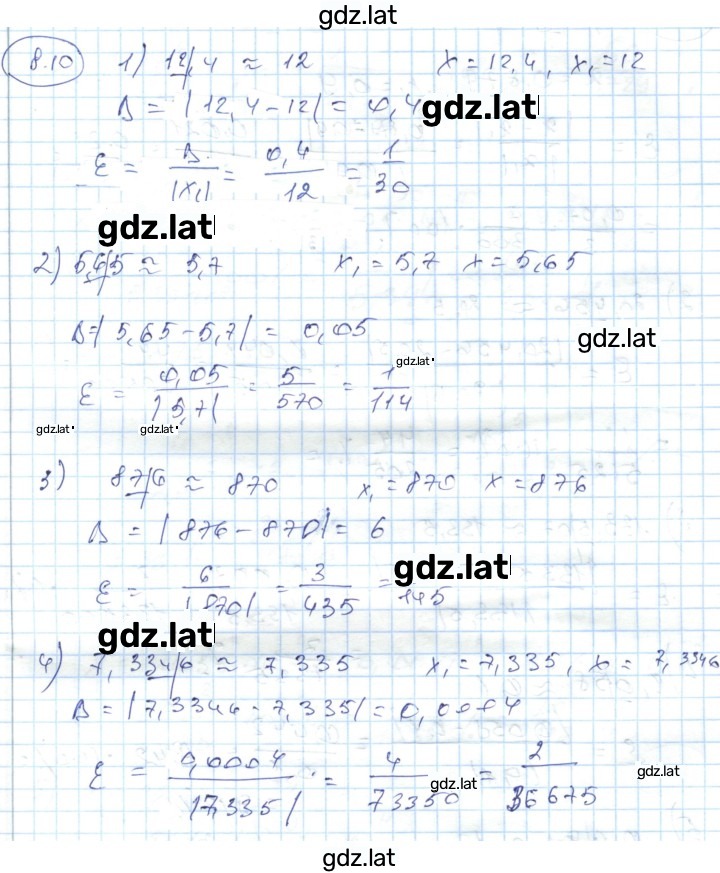 gdz.lat
8.10 1) 12,4 ≈ 12 x = 12,4, x₁ = 12
Δ = |12,4 − 12| = 0,4 gdz.lat
ε = Δ/|x₁| = 0,4/12 = 1/30
gdz.lat
2) 5,65 ≈ 5,7 x₁ = 5,7 x = 5,65
Δ = |5,65 − 5,7| = 0,05 gdz.lat
gdz.lat
ε = 0,05/|5,7| = 5/570 = 1/114
gdz.lat gdz.lat
3) 876 ≈ 870 x₁ = 870 x = 876
Δ = |876 − 870| = 6
gdz.lat
ε = 6/|870| = 3/435 = /145
gdz.lat
4) 7,3346 ≈ 7,335 x₁ = 7,335, x = 7,3346
Δ = |7,3346 - 7,335| = 0,0004
ε = 0,0004/|7,335| = 4/73350 = 2/36675
gdz.lat gdz.lat
gdz.lat